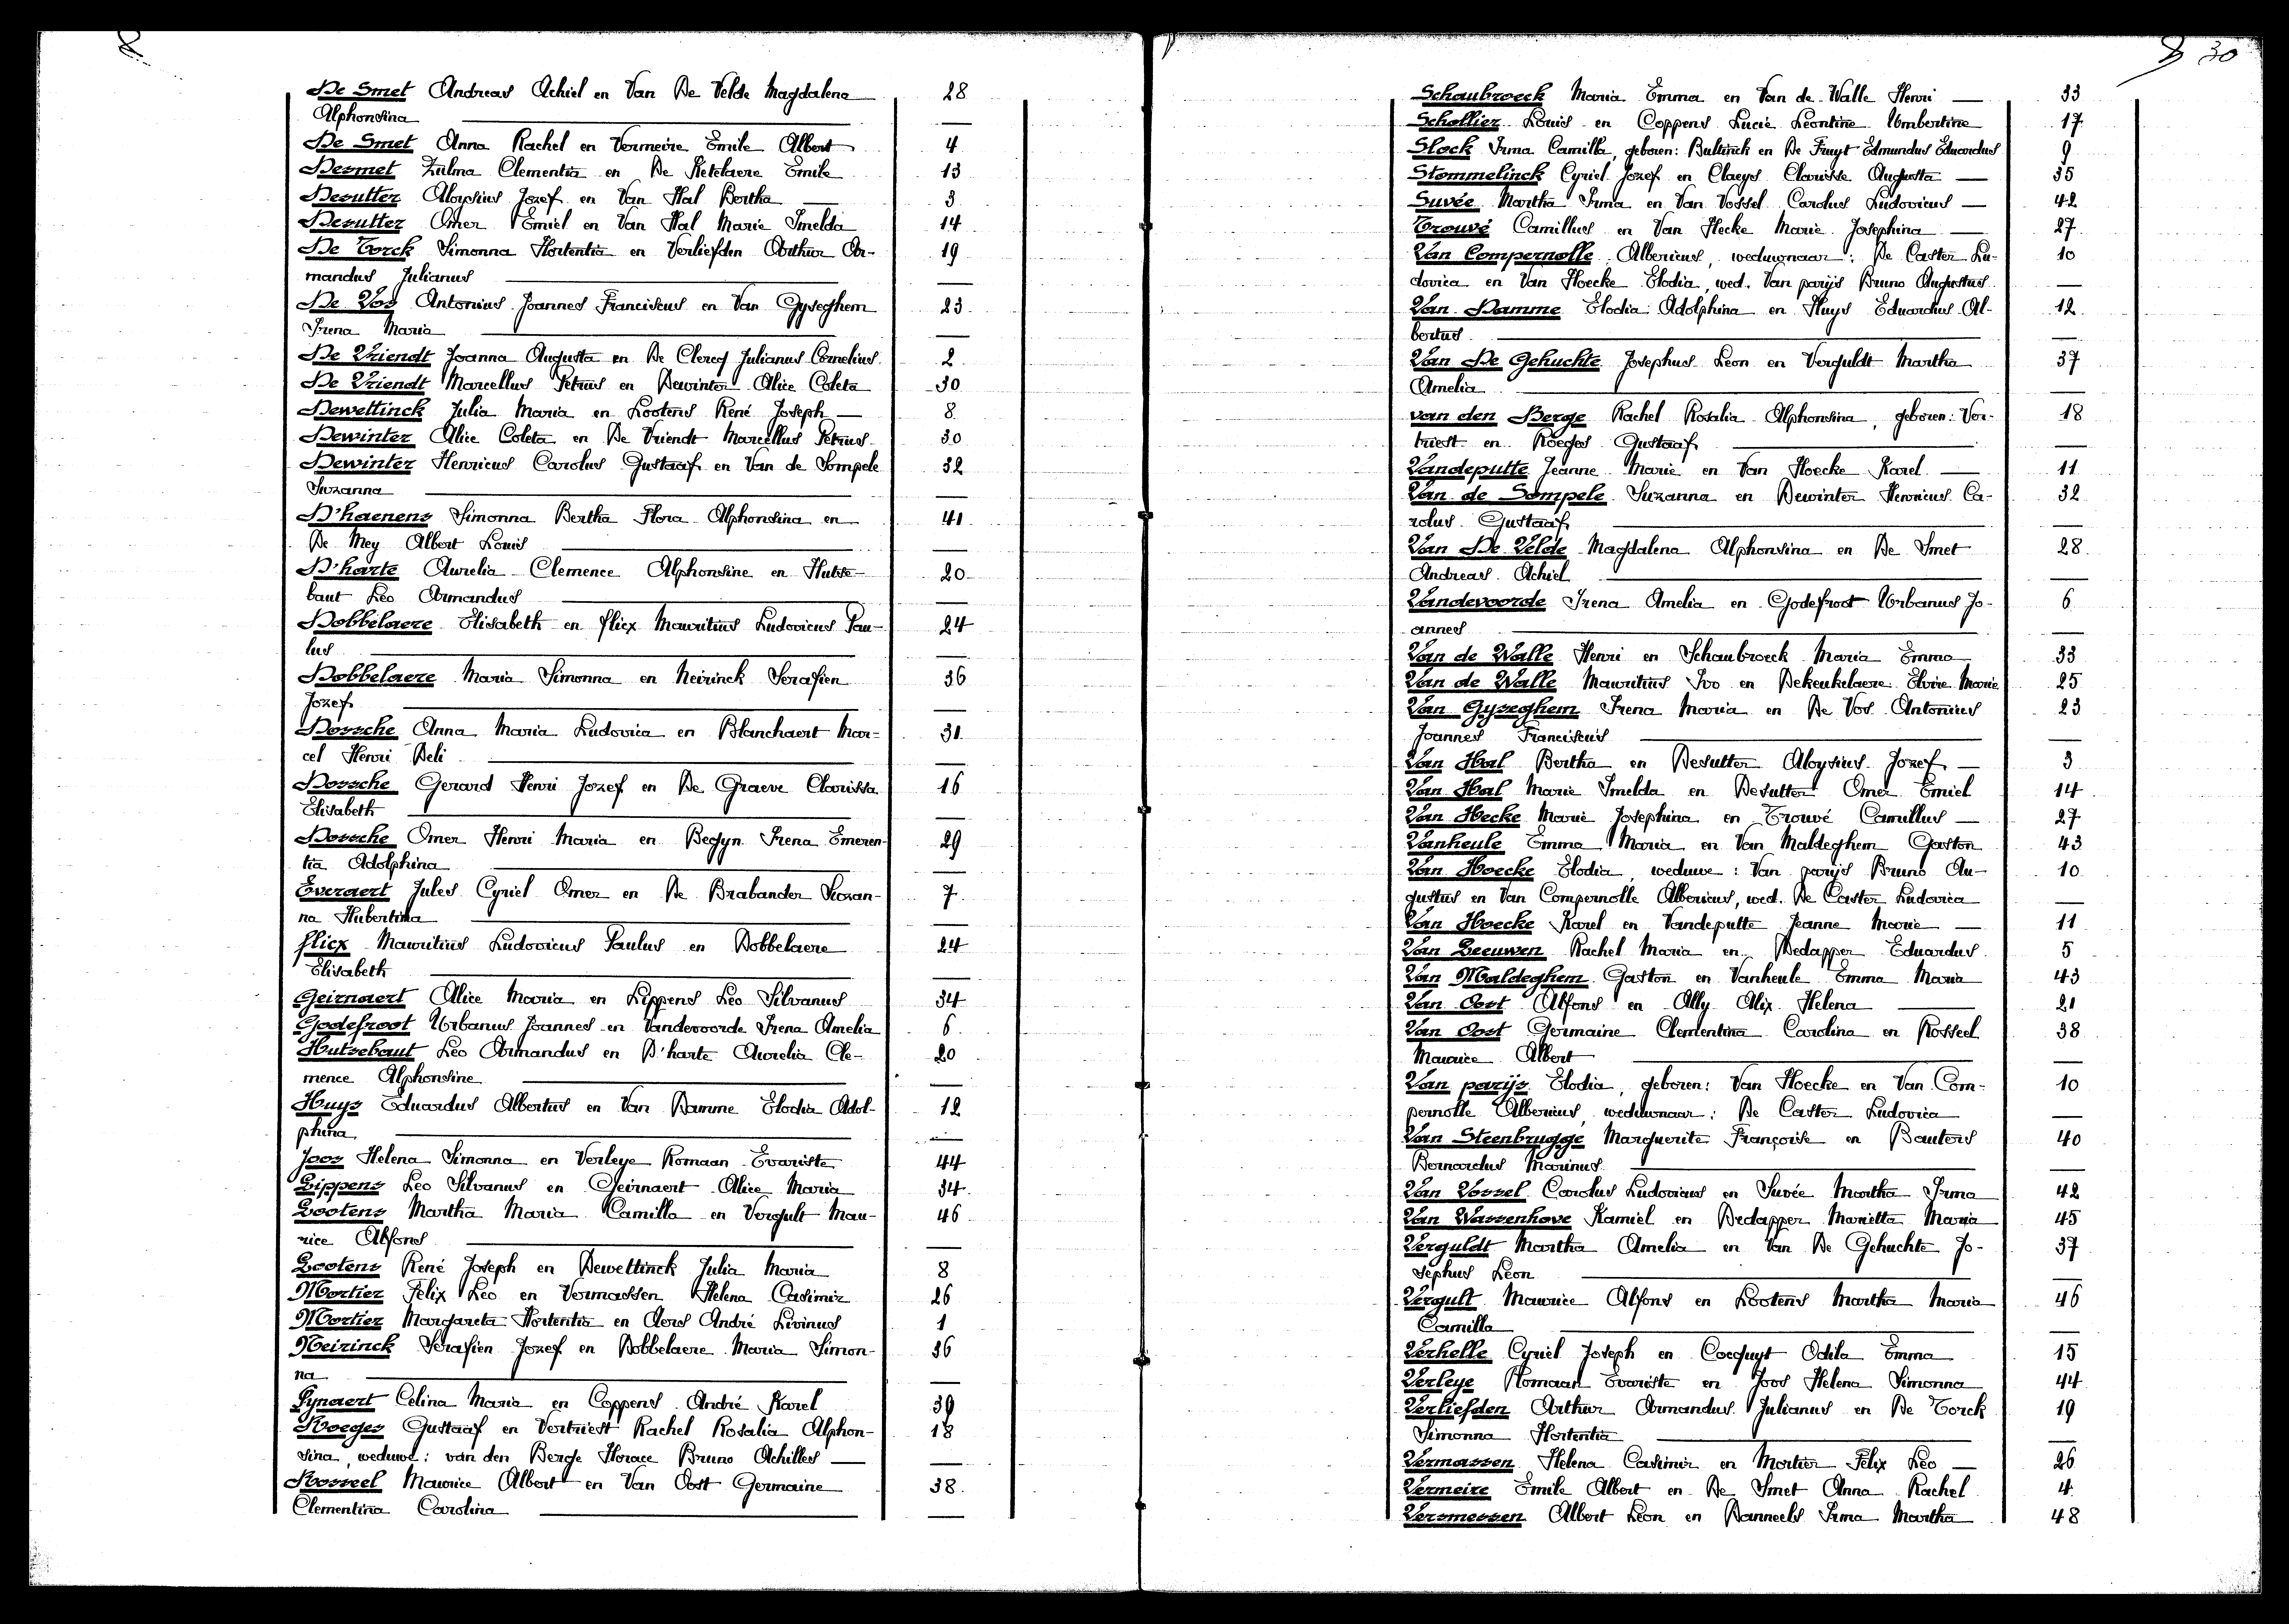 De Smet Andreas Achiel en Van De Velde Magdalena 28
Alphonsina
De Smet Anna Rachel en Vermeire Emile Albert 4
Desmet Zulma Clementia en De Ketelaere Emile 13
Desutter Aloysius Jozef en Van Hal Bertha 3
Desutter Omer Emiel en Van Hal Marie Imelda 14
De Torck Simonna Hortentia en Verliefden Arthur Ar-  19
mandus Julianus
De Vos Antonius Joannes Franciscus en Van Gyseghem 23
Irena Maria
De Vriendt Joanna Augusta en De Clercq Julianus Cornelius 2
De Vriendt Marcellus Petrus en Dewinter Alice Coleta 30
Dewettinck Julia Maria en Lootens René Joseph 8
Dewinter Alice Coleta en De Vriendt Marcellus Petrus 30
Dewinter Henricus Carolus Gustaaf en Van de Sompele 32
Suzanna
D'haenens Simonna Bertha Flora Alphonsina en 41
De Mey Albert Louis
D'harte Aurelia Clemence Alphonsine en Hutse- 20
baut Leo Armandus
Dobbelaere Elisabeth en flicx Mauritius Ludovicus Pau- 24
lus
Dobbelaere Maria Simonna en Neirinck Serafien 36
Jozef
Dossche Anna Maria Ludovica en Blanchaert Mar- 31
cel Henri Deli
Dossche Gerard Henri Jozef en De Graeve Clarissa 16
Elisabeth
Dossche Omer Henri Maria en Begyn Irena Emeren- 29
tia Adolphina
Everaert Jules Cyriel Omer en De Brabander Suzan- 7
na Hubertina
flicx Mauritius Ludovicus Paulus en Dobbelaere 24
Elisabeth
Geirnaert Alice Maria en Lippens Leo Silvanus 34
Godefroot Urbanus Joannes en Vandevoorde Irena Amelia 6
Hutsebaut Leo Armandus en D'harte Aurelia Cle- 20
mence Alphonsine
Huys Eduardus Albertus en Van Damme Elodia Adol- 12
phina
Joos Helena Simonna en Verleye Romaan Evariste 44
Lippens Leo Silvanus en Geirnaert Alice Maria 34
Lootens Martha Maria Camilla en Vergult Mau- 46
rice Alfons
Lootens René Joseph en Dewettinck Julia Maria 8
Mortier Felix Leo en Vermassen Helena Casimir 26
Mortier Margareta Hortentia en Aers André Livinus 1
Neirinck Serafien Jozef en Dobbelaere Maria Simon- 36
na
Pynaert Celina Maria en Coppens André Karel 39
Roeges Gustaaf en Vertriest Rachel Rosalia Alphon- 18
sina, weduwe: van den Berge Horace Bruno Achilles
Rosseel Maurice Albert en Van Oost Germaine 38
Clementina Carolina
30
Schaubroeck Maria Emma en Van de Walle Henri 33
Schollier Louis en Coppens Lucie Leontine Umbertine 17
Slock Irma Camilla, geboren: Bultinck en De Fruyt Edmundus Eduardus 9
Stommelinck Cyriel Jozef en Claeys Clarisse Augusta 35
Suvée Martha Irma en Van Vossel Carolus Ludovicus 42
Trouvé Camillus en Van Hecke Marie Josephina 27
Van Compernolle Albericus, weduwnaar: De Caster Lu- 10
dovica en Van Hoecke Elodia, wed. Van parijs Bruno Augustus
Van Damme Elodia Adolphina en Huys Eduardus Al- 12
bertus
Van De Gehuchte Josephus Leon en Verguldt Martha 37
Amelia
van den Berge Rachel Rosalia Alphonsina, geboren: Ver- 18
triest en Roeges Gustaaf
Vandeputte Jeanne Marie en Van Hoecke Karel 11
Van de Sompele Suzanna en Dewinter Henricus Ca- 32
rolus Gustaaf
Van De Velde Magdalena Alphonsina en De Smet 28
Andreas Achiel
Vandevoorde Irena Amelia en Godefroot Urbanus Jo- 6
annes
Van de Walle Henri en Schaubroeck Maria Emma 33
Van de Walle Mauritius Ivo en Dekeukelaere Elvire Marie 25
Van Gyseghem Irena Maria en De Vos Antonius 23
Joannes Franciscus
Van Hal Bertha en Desutter Aloysius Jozef 3
Van Hal Marie Imelda en Desutter Omer Emiel 14
Van Hecke Marie Josephina en Trouvé Camillus 27
Vanheule Emma Maria en Van Maldeghem Gaston 43
Van Hoecke Elodia, weduwe: Van parijs Bruno Au- 10
gustus en Van Compernolle Albericus, wed. De Caster Ludovica
Van Hoecke Karel en Vandeputte Jeanne Marie 11
Van Leeuwen Rachel Maria en Dedapper Eduardus 5
Van Maldeghem Gaston en Vanheule Emma Maria 43
Van Oost Alfons en Ally Alix Helena 21
Van Oost Germaine Clementina Carolina en Rosseel 38
Maurice Albert
Van parijs Elodia, geboren: Van Hoecke en Van Com- 10
pernolle Albericus, weduwnaar: De Caster Ludovica
Van Steenbrugge Marguerite Françoise en Bauters 40
Bernardus Marinus
Van Vossel Carolus Ludovicus en Suvée Martha Irma 42
Van Wassenhove Kamiel en Dedapper Marietta Maria 45
Verguldt Martha Amelia en Van De Gehuchte Jo- 37
sephus Leon
Vergult Maurice Alfons en Lootens Martha Maria 46
Camilla
Verhelle Cyriel Joseph en Cocquyt Odila Emma 15
Verleye Romaan Evariste en Joos Helena Simonna 44
Verliefden Arthur Armandus Julianus en De Torck 19
Simonna Hortentia
Vermassen Helena Casimir en Mortier Felix Leo 26
Vermeire Emile Albert en De Smet Anna Rachel 4
Versmessen Albert Leon en Danneels Irma Martha 48